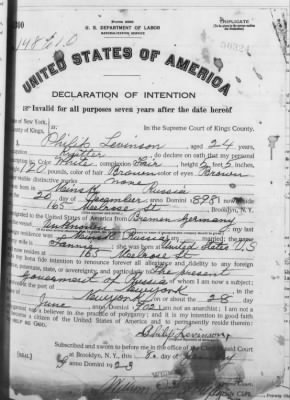 Form 2202
U. S. DEPARTMENT OF LABOR
NATURALIZATION SERVICE
DUPLICATE
UNITED STATES OF AMERICA
DECLARATION OF INTENTION
Invalid for all purposes seven years after the date hereof
of New York,
of Kings,
ss:
In the Supreme Court of Kings County.
Philip Levinson, aged 24 years,
occupation, do declare on oath that my personal
Color White, complexion Fair, height 5 feet 5 inches,
120 pounds, color of hair Brown, color of eyes Brown
visible distinctive marks none
born in Minsk Russia
20 day of December, anno Domini 1898; I now reside
165 Melrose St, Brooklyn, N. Y.
to the United States of America from Bremen Germany
; my last
residence was Russia; I am married; the name
wife is Fannie; she was born at United States
now resides at 165 Melrose St
my bona fide intention to renounce forever all allegiance and fidelity to any foreign
prince, potentate, state, or sovereignty, and particularly to The present
Government of Russia, of whom I am now a subject;
the port of New York, in the
New York, on or about the 28 day
June, anno Domini; I am not an anarchist; I am not a
nor a believer in the practice of polygamy; and it is my intention in good faith
become a citizen of the United States of America and to permanently reside therein:
HELP ME GOD.
Philip Levinson
Subscribed and sworn to before me in the office of the Clerk of said Court
[SEAL]
at Brooklyn, N. Y., this 8 day of
anno Domini 1923